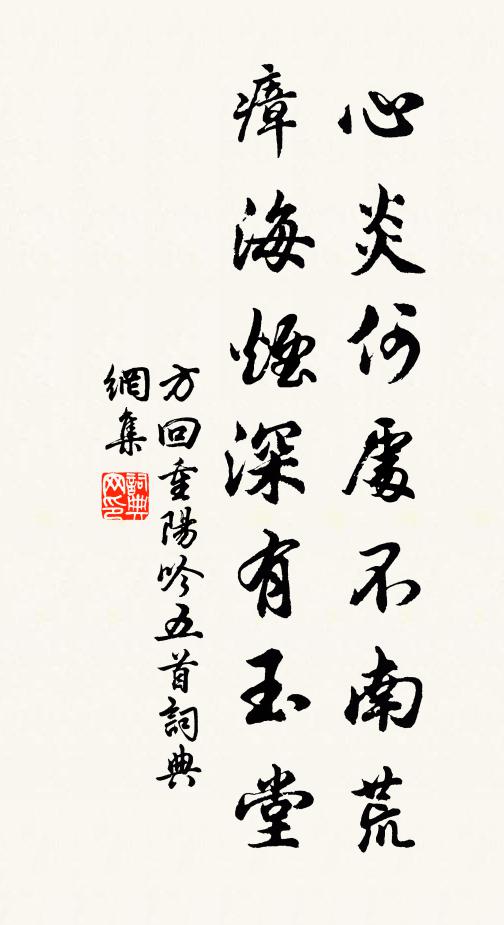 心炎何處不南荒
瘴海煙深有玉堂
方回重陽吟五首詞典
網集
詞典
网印